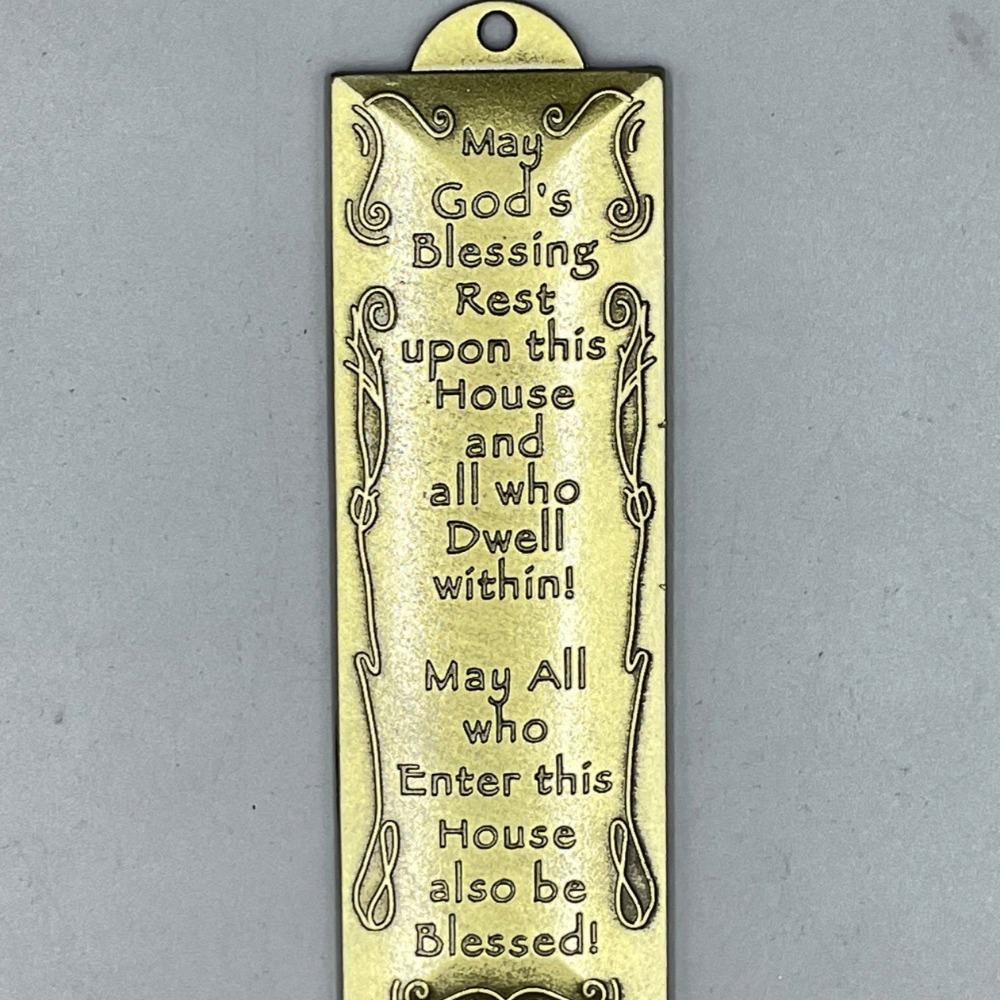 May
God's
Blessing
Rest
upon this
House
and
all who
Dwell
within!
May All
who
Enter this
House
also be
Blessed!